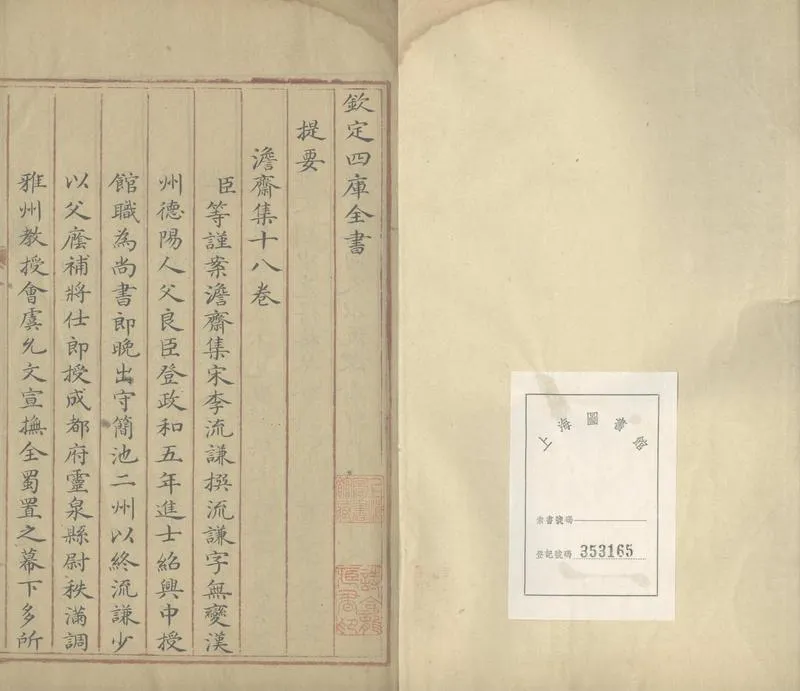 欽定四庫全書
提要
澹齋集十八卷
臣等謹案澹齋集宋李流謙撰流謙字無變漢
州德陽人父良臣登政和五年進士紹興中授
館職為尚書郎晚出守簡池二州以終流謙少
以父廕補將仕郎授成都府靈泉縣尉秩滿調
雅州教授會虞允文宣撫全蜀置之幕下多所
上海圖書館
索書號碼
登記號碼 353165